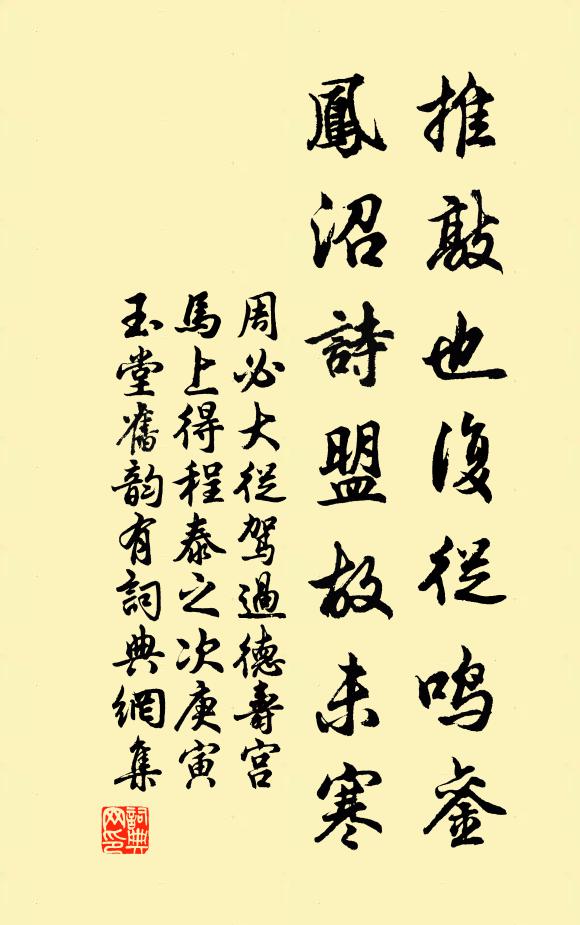 推敲也復從鳴銮
鳳沼詩盟故未寒
周必大從駕過德壽宮
馬上得程泰之次庚寅
玉堂舊韵有詞典網集
詞典
网印